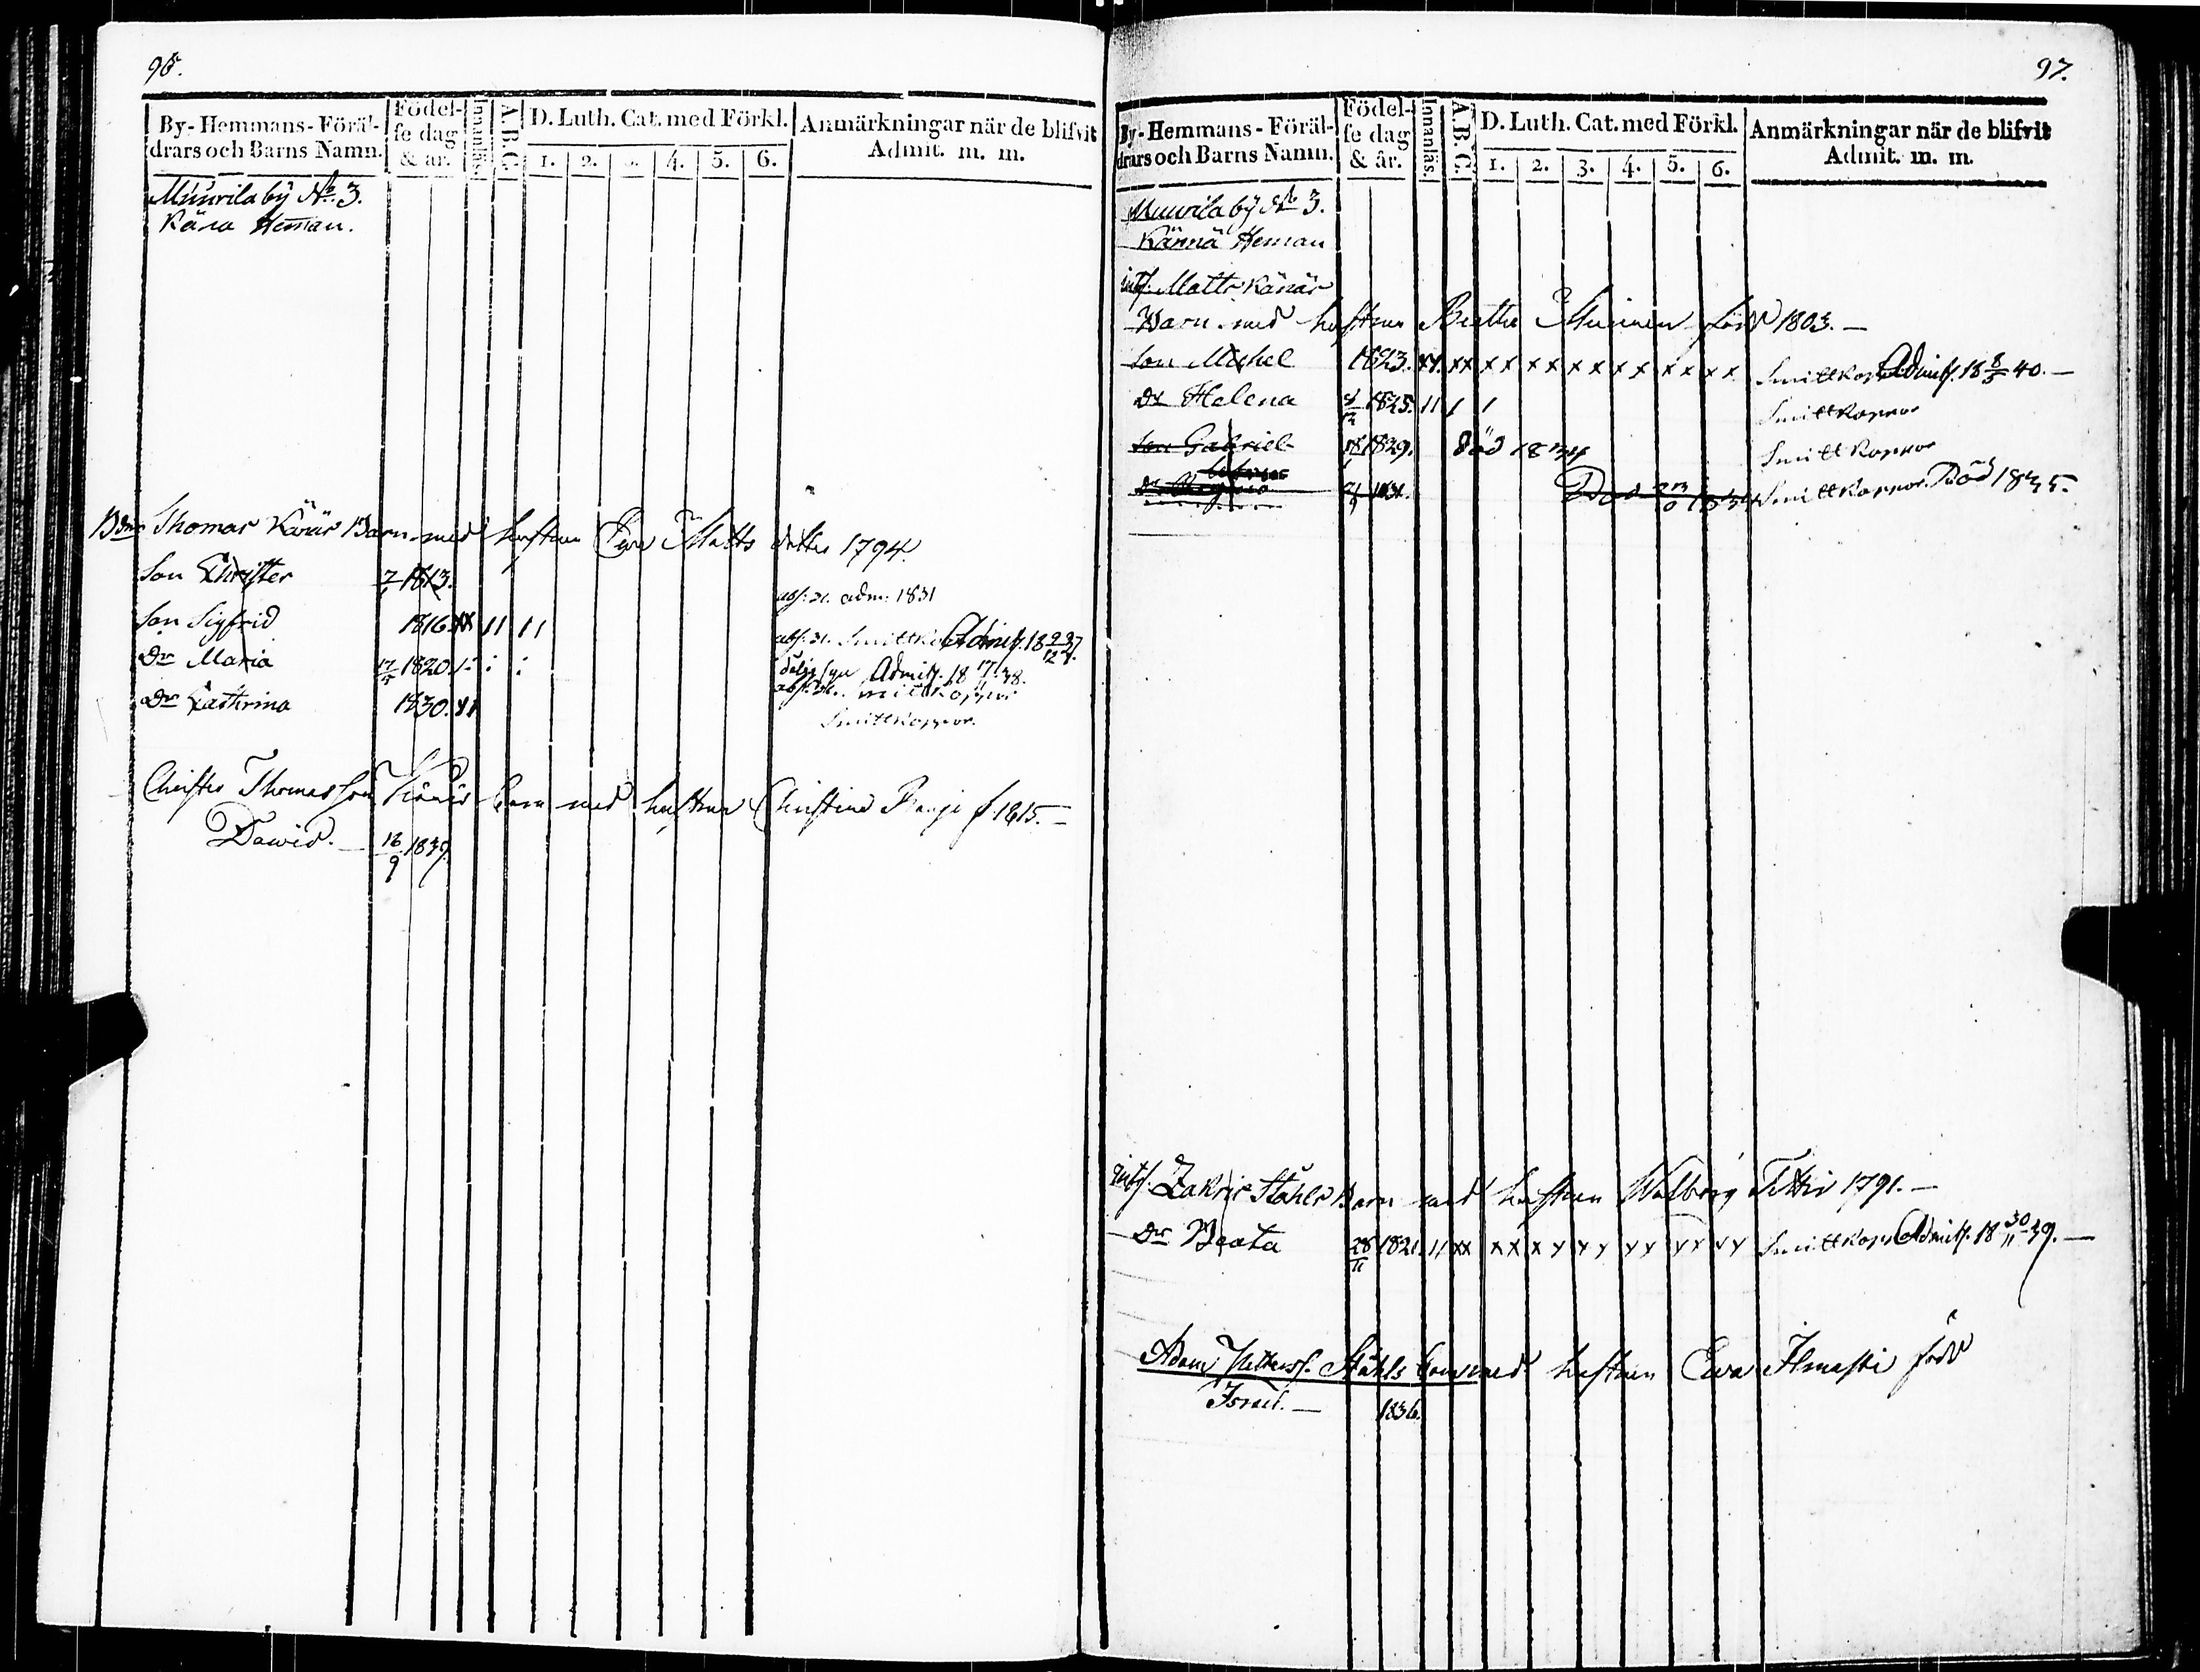 96.
By-Hemmans-Föräl-
drars och Barns Namn.
Födel-
se dag
& år.
Innanläs.
A.B.C.
D. Luth. Cat. med Förkl.
1. 2. 3. 4. 5. 6.
Anmärkningar när de blifvit
Admit. m. m.
Muurila by No. 3.
Kärä Heman.
Thomas Känär Barn med hustrun Ewa Matts dotter 1794.
Son Christer 1813. adm: 1831
Son Sigfrid 1816 xx 11 11 Admitt. 18
Dr Maria 17/5 1820 Admitt. 18 17/11 38.
Smittkoppor
Dr Cathrina 1830.
Smittkoppor.
Christer Thomasson Känär barn med hustrun Christina f 1815.
Dawid. 16/9 1837
97.
By-Hemmans-Föräl-
drars och Barns Namn.
Födel-
se dag
& år.
Innanläs.
A.B.C.
D. Luth. Cat. med Förkl.
1. 2. 3. 4. 5. 6.
Anmärkningar när de blifvit
Admit. m. m.
Muurila by No 3.
Kännä Heman
inh. Matts Känär
Barn med hustrun Beatha Muinen född 1803.
Son Michel 1823. xx xx x x x x x x x x x x x x Smittkop Admitt. 18 8/5 40.
Dr Helena 1825. 11 1 1 Smittkoppor
Son Gabriel 1829. död 1834 Smittkoppor
Dr Död 1834 Smittkoppor. Död 1835.
inh. Zakris Ståhls Barn med hustrun Walborg Tettir 1791.
Dr Beata 28/11 1821 11 xx x x x x x x x x x x x x Smittkopp Admitt. 18 30/11 39.
Adam Ståhls barn med hustrun Ewa Ilmasti född
Israel. 1836.